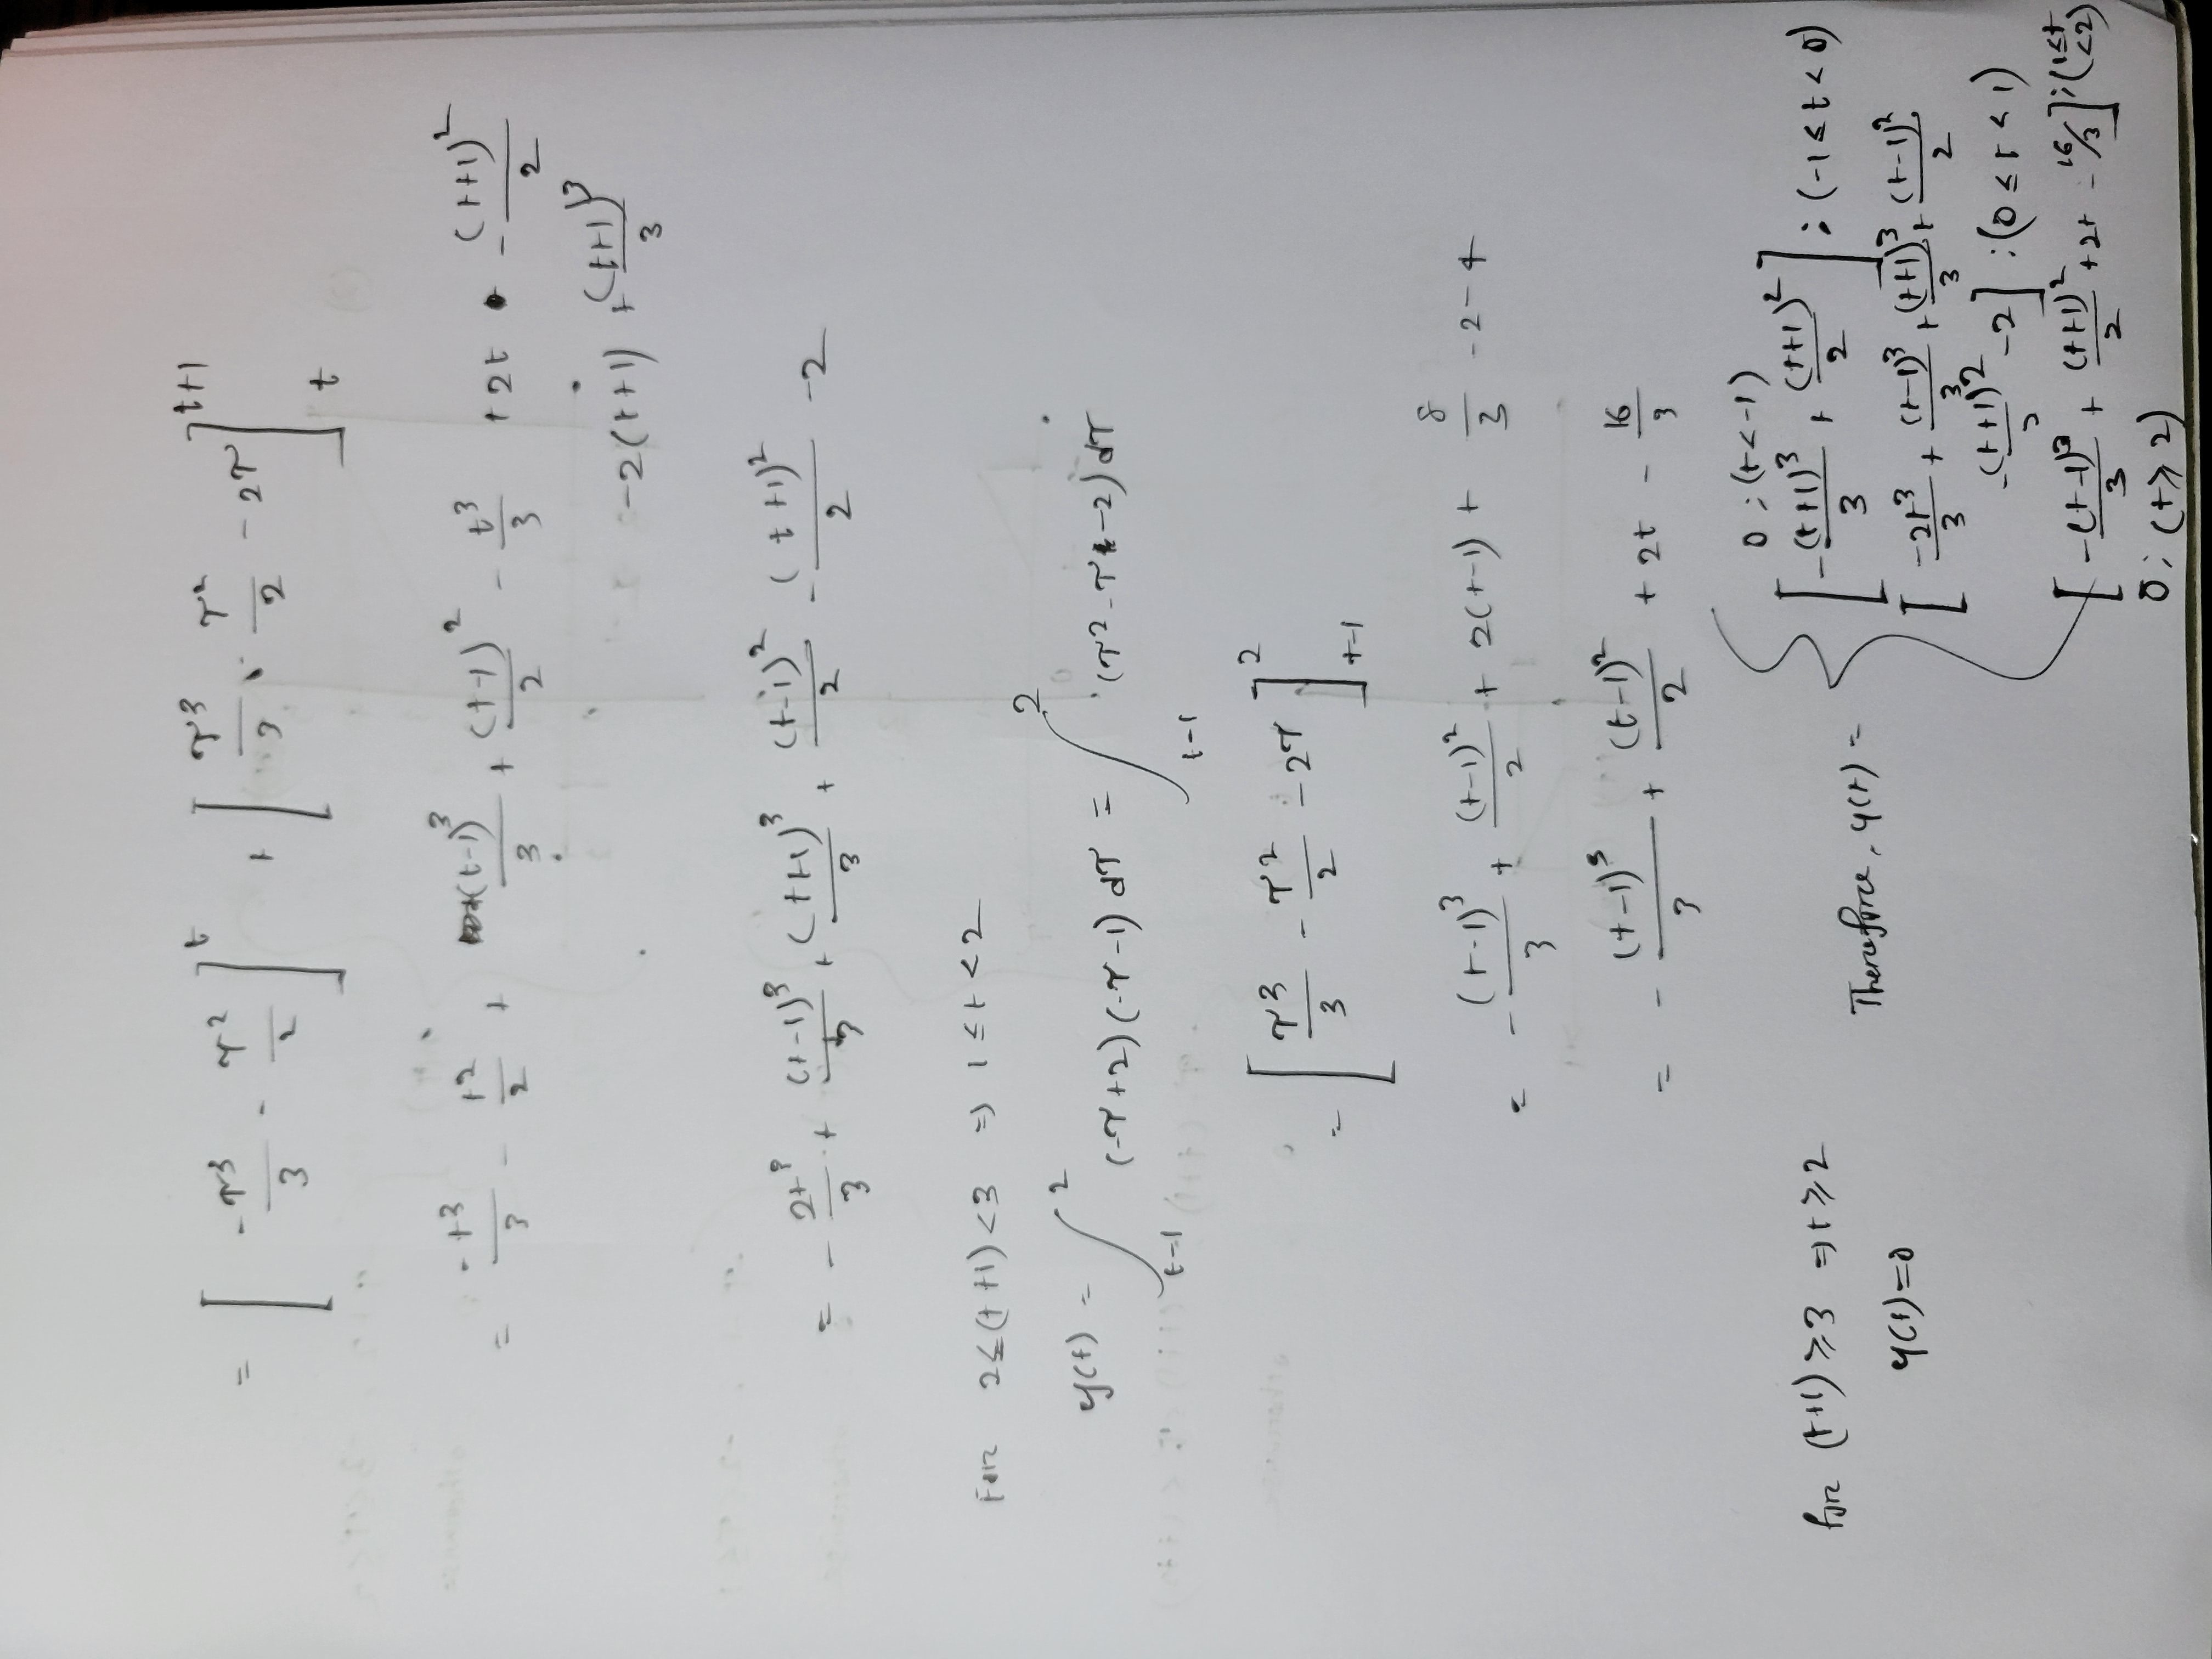 = [ -τ³/3 - τ²/2 ]^t + [ τ³/3 - τ²/2 - 2τ ]_t^{t+1}
= -t³/3 - t²/2 + (t-1)³/3 + (t-1)²/2 - t³/3 + 2t - (t+1)²/2
-2(t+1) + (t+1)³/3
= - 2t³/3 + (t-1)³/3 + (t+1)³/3 + (t-1)²/2 - (t+1)²/2 - 2
For 2≤(t+1)<3 ⇒ 1≤t<2
y(t) = ∫_{t-1}^{2} (-τ+2)(-τ-1) dτ = ∫_{t-1}^{2} (τ²-τ-2) dτ
= [ τ³/3 - τ²/2 - 2τ ]_{t-1}^{2}
= - (t-1)³/3 + (t-1)²/2 + 2(t-1) + 8/3 - 2 - 4
= - (t-1)³/3 + (t-1)²/2 + 2t - 16/3
for (t+1)≥3 ⇒ t≥2
y(t)=0
Therefore, y(t) = {
0 ; (t<-1)
[ -(t+1)³/3 + (t+1)²/2 ] ; (-1≤t<0)
[ -2t³/3 + (t-1)³/3 + (t+1)³/3 + (t-1)²/2
-(t+1)²/2 - 2 ] ; (0≤t<1)
[ -(t-1)³/3 + (t+1)²/2 + 2t - 16/3 ] ; (1≤t<2)
0 ; (t≥2)